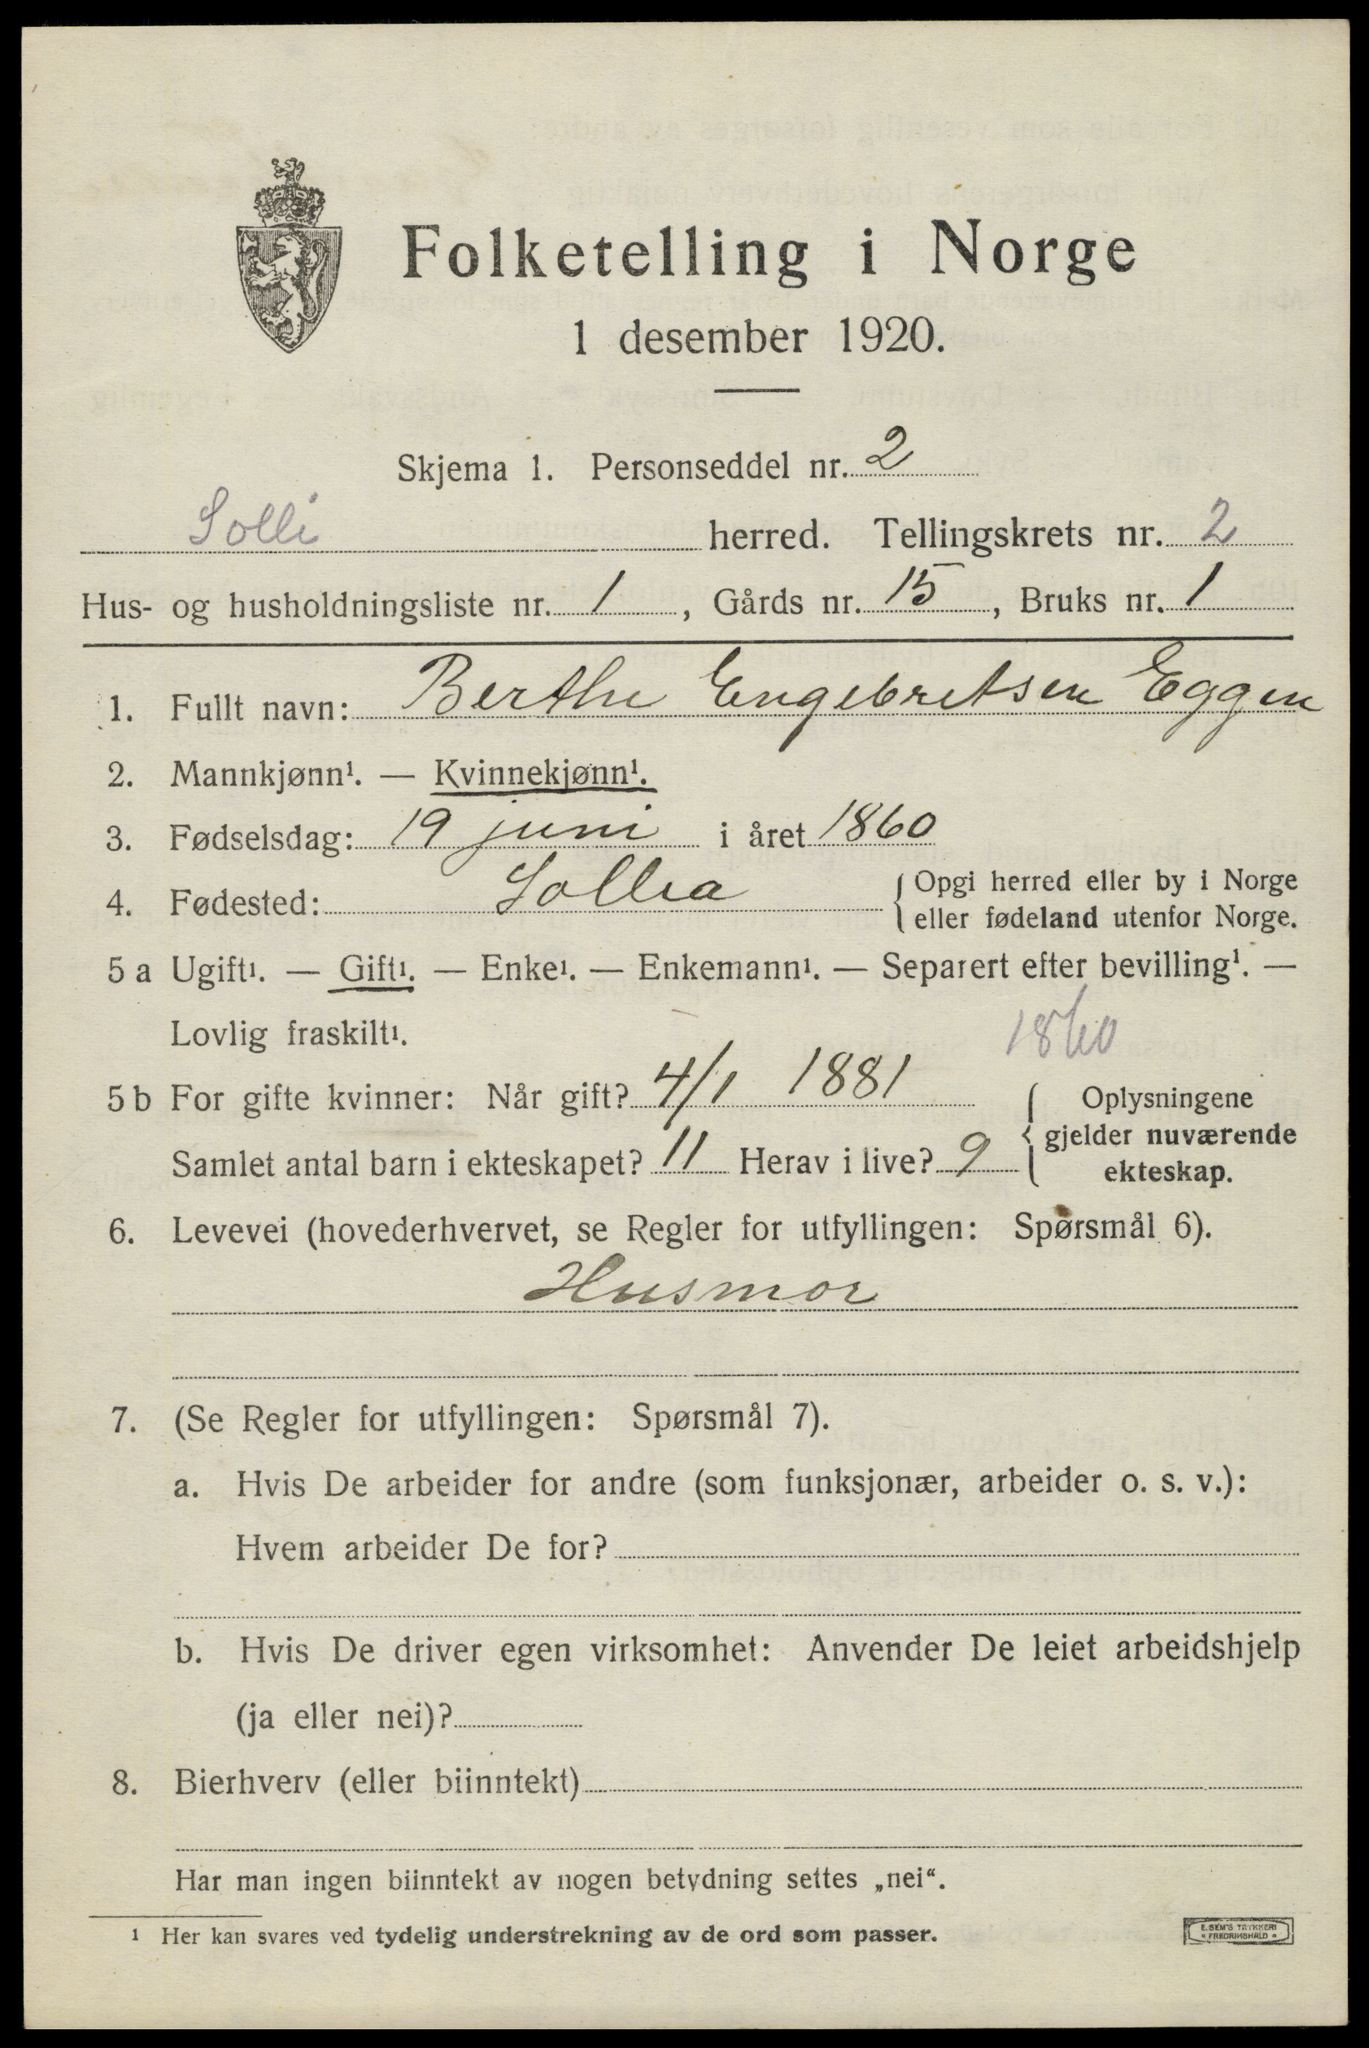 Folketelling i Norge
1 desember 1920.
Skjema 1. Personseddel nr. 2
Solli herred. Tellingskrets nr. 2
Hus- og husholdningsliste nr. 1, Gårds nr. 15, Bruks nr. 1
1. Fullt navn: Berthe Engebretsen Eggen
2. Mannkjønn¹. — Kvinnekjønn¹.
3. Fødselsdag: 19 juni i året 1860
4. Fødested: Sollia { Opgi herred eller by i Norge
eller fødeland utenfor Norge.
5 a Ugift¹. — Gift¹. — Enke¹. — Enkemann¹. — Separert efter bevilling¹. —
Lovlig fraskilt¹.
1860
5 b For gifte kvinner: Når gift? 4/1 1881
Samlet antal barn i ekteskapet? 11 Herav i live? 9
{ Oplysningene
gjelder nuværende
ekteskap.
6. Levevei (hovederhvervet, se Regler for utfyllingen: Spørsmål 6).
Husmor
7. (Se Regler for utfyllingen: Spørsmål 7).
a. Hvis De arbeider for andre (som funksjonær, arbeider o. s. v.):
Hvem arbeider De for?
b. Hvis De driver egen virksomhet: Anvender De leiet arbeidshjelp
(ja eller nei)?
8. Bierhverv (eller biinntekt)
Har man ingen biinntekt av nogen betydning settes „nei“.
¹ Her kan svares ved tydelig understrekning av de ord som passer.
E. SEM'S TRYKKERI
FREDRIKSHALD